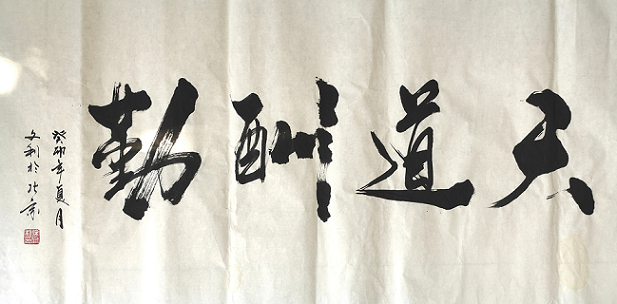 天道酬勤
癸卯年夏月
文利於北京